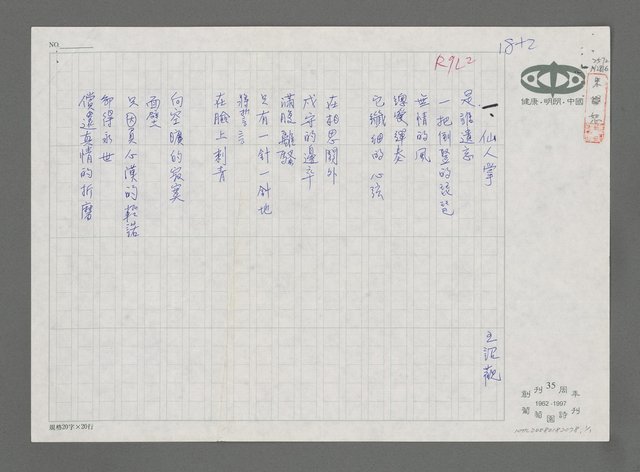 NO.
18+2
R9L2
健康・明朗・中國
一、仙人掌
王詔觀
是誰遺忘
一把倒豎的琵琶
無情的風
總愛彈奏
它纖細的心弦
在相思關外
戍守的邊卒
滿腹離騷
只有一針一針地
將誓言
在臉上刺青
向空曠的寂寞
面壁
只因負心漢的輕諾
卻得永世
償還真情的折磨
規格20字×20行
創刊35周年
1962-1997
葡萄園詩刊